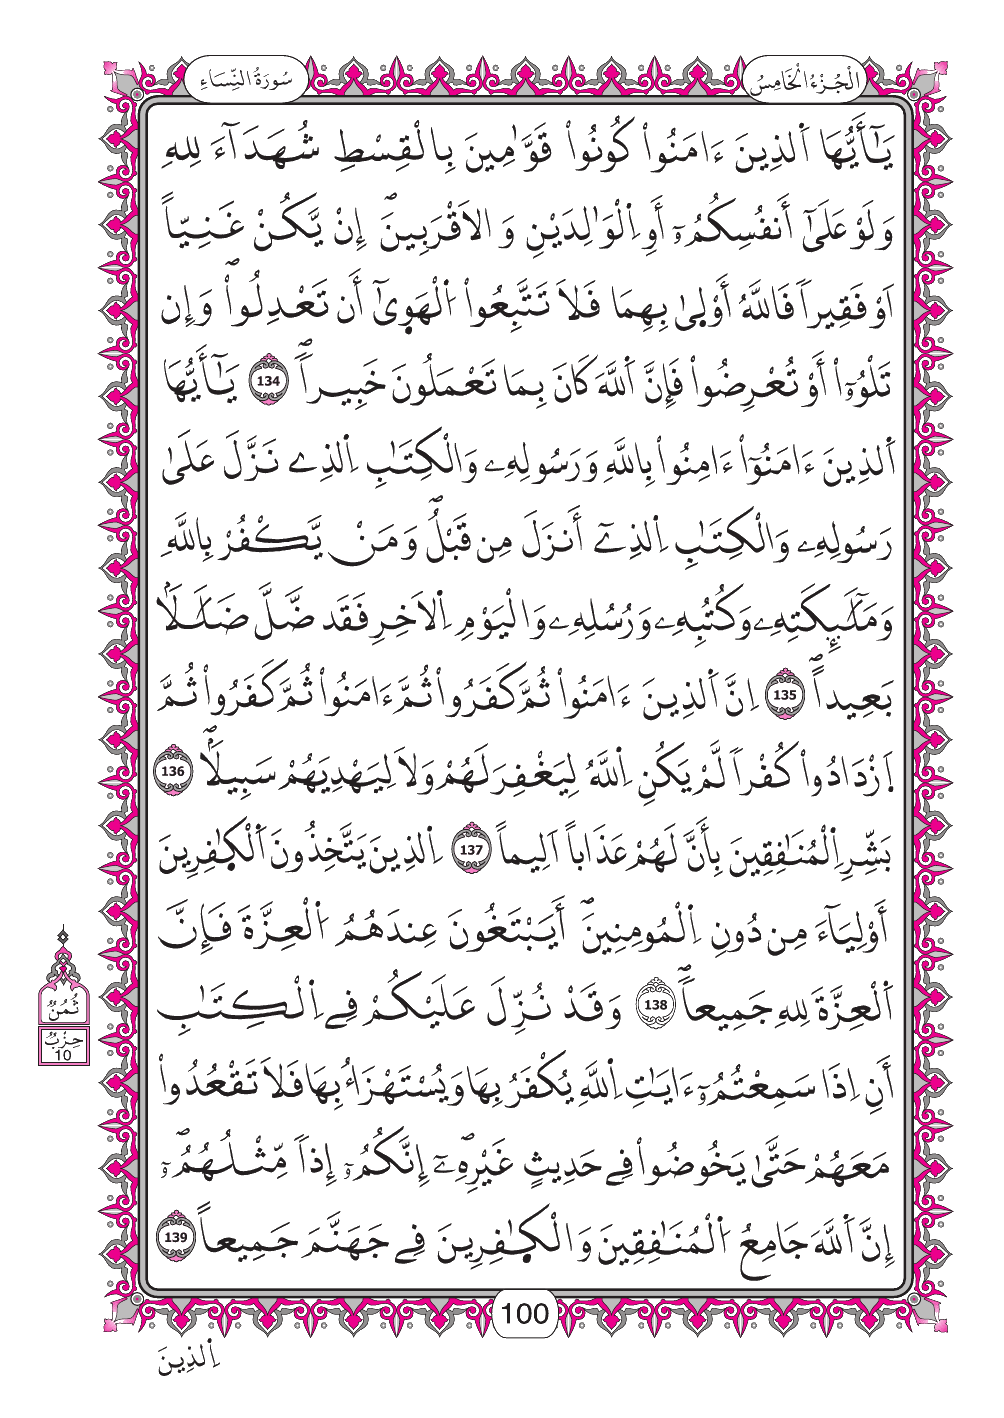 سُورَةُ النِّسَاءِ
الْجُزْءُ الْخَامِسُ
يَٰٓأَيُّهَا اَ۬لذِينَ ءَامَنُواْ كُونُواْ قَوَّٰمِينَ بِالْقِسْطِ شُهَدَآءَ لِلهِ
وَلَوْ عَلَىٰٓ أَنفُسِكُمُۥٓ أَوِ اِ۬لْوَٰلِدَيْنِ وَالَاقْرَبِينَۖ إِنْ يَّكُنْ غَنِيّاً
اَوْ فَقِيراٗ فَاللَّهُ أَوْل۪ىٰ بِهِمَا فَلَا تَتَّبِعُواْ اُ۬لْهَو۪ىٰٓ أَن تَعْدِلُواْۖ وَإِن
تَلْوُۥٓاْ أَوْ تُعْرِضُواْ فَإِنَّ اَ۬للَّهَ كَانَ بِمَا تَعْمَلُونَ خَبِيراٗۖ 134 يَٰٓأَيُّهَا
اَ۬لذِينَ ءَامَنُوٓاْ ءَامِنُواْ بِاللَّهِ وَرَسُولِهِۦ وَالْكِتَٰبِ اِ۬لذِے نَزَّلَ عَلَىٰ
رَسُولِهِۦ وَالْكِتَٰبِ اِ۬لذِےٓ أَنزَلَ مِن قَبْلُۖ وَمَنْ يَّكْفُرْ بِاللَّهِ
وَمَلَٰٓئِكَتِهِۦ وَكُتُبِهِۦ وَرُسُلِهِۦ وَالْيَوْمِ اِ۬لَاخِرِ فَقَد ضَّلَّ ضَلَٰلاَۢ
بَعِيداًۖ 135 اِنَّ اَ۬لذِينَ ءَامَنُواْ ثُمَّ كَفَرُواْ ثُمَّ ءَامَنُواْ ثُمَّ كَفَرُواْ ثُمَّ
اَ۪زْدَادُواْ كُفْراٗ لَّمْ يَكُنِ اِ۬للَّهُ لِيَغْفِرَ لَهُمْ وَلَا لِيَهْدِيَهُمْ سَبِيلاَۢۖ 136
بَشِّرِ اِ۬لْمُنَٰفِقِينَ بِأَنَّ لَهُمْ عَذَاباً اَلِيماً 137 اِ۬لذِينَ يَتَّخِذُونَ اَ۬لْكٰ۪فِرِينَ
أَوْلِيَآءَ مِن دُونِ اِ۬لْمُومِنِينَۖ أَيَبْتَغُونَ عِندَهُمُ اُ۬لْعِزَّةَ فَإِنَّ
اَ۬لْعِزَّةَ لِلهِ جَمِيعاٗۖ 138 وَقَدْ نُزِّلَ عَلَيْكُمْ فِے اِ۬لْكِتَٰبِ
أَنِ اِذَا سَمِعْتُمُۥٓ ءَايَٰتِ اِ۬للَّهِ يُكْفَرُ بِهَا وَيُسْتَهْزَأُ بِهَا فَلَا تَقْعُدُواْ
مَعَهُمْ حَتَّىٰ يَخُوضُواْ فِے حَدِيثٍ غَيْرِهِۦٓۖ إِنَّكُمُۥٓ إِذاٗ مِّثْلُهُمُۥٓۖ
إِنَّ اَ۬للَّهَ جَامِعُ اُ۬لْمُنَٰفِقِينَ وَالْكٰ۪فِرِينَ فِے جَهَنَّمَ جَمِيعاً 139
ثُمُنُ
حِزْبُ
10
100
اِ۬لذِينَ